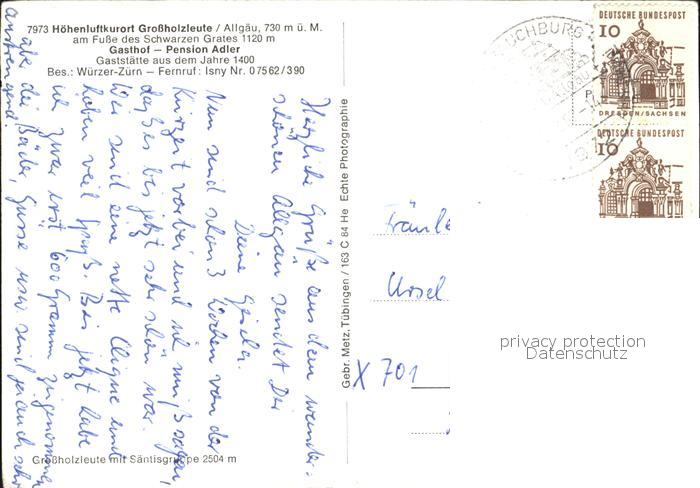 7973 Höhenluftkurort Großholzleute / Allgäu, 730 m ü. M.
am Fuße des Schwarzen Grates 1120 m
Gasthof – Pension Adler
Gaststätte aus dem Jahre 1400
Bes.: Würzer-Zürn – Fernruf: Isny Nr. 07562/390
Herzliche Grüße aus dem wunder-
schönen Allgäu sendet Dir
Deine Gisela.
Nun sind schon 3 Wochen von der
Kurzeit vorbei und ich muß sagen,
daß es bis jetzt sehr schön war.
Wir sind eine nette Clique und
haben viel Spaß. Bis jetzt habe
ich zwar erst 600 Gramm zugenommen
aber die Bäder, Güsse usw sind ja auch sehr
anstrengend.
Großholzleute mit Säntisgruppe 2504 m
Gebr. Metz, Tübingen / 163 C 84 He Echte Photographie
DEUTSCHE BUNDESPOST
10
DRESDEN/SACHSEN
DEUTSCHE BUNDESPOST
10
Fräule
Ursel
X 701
privacy protection
Datenschutz